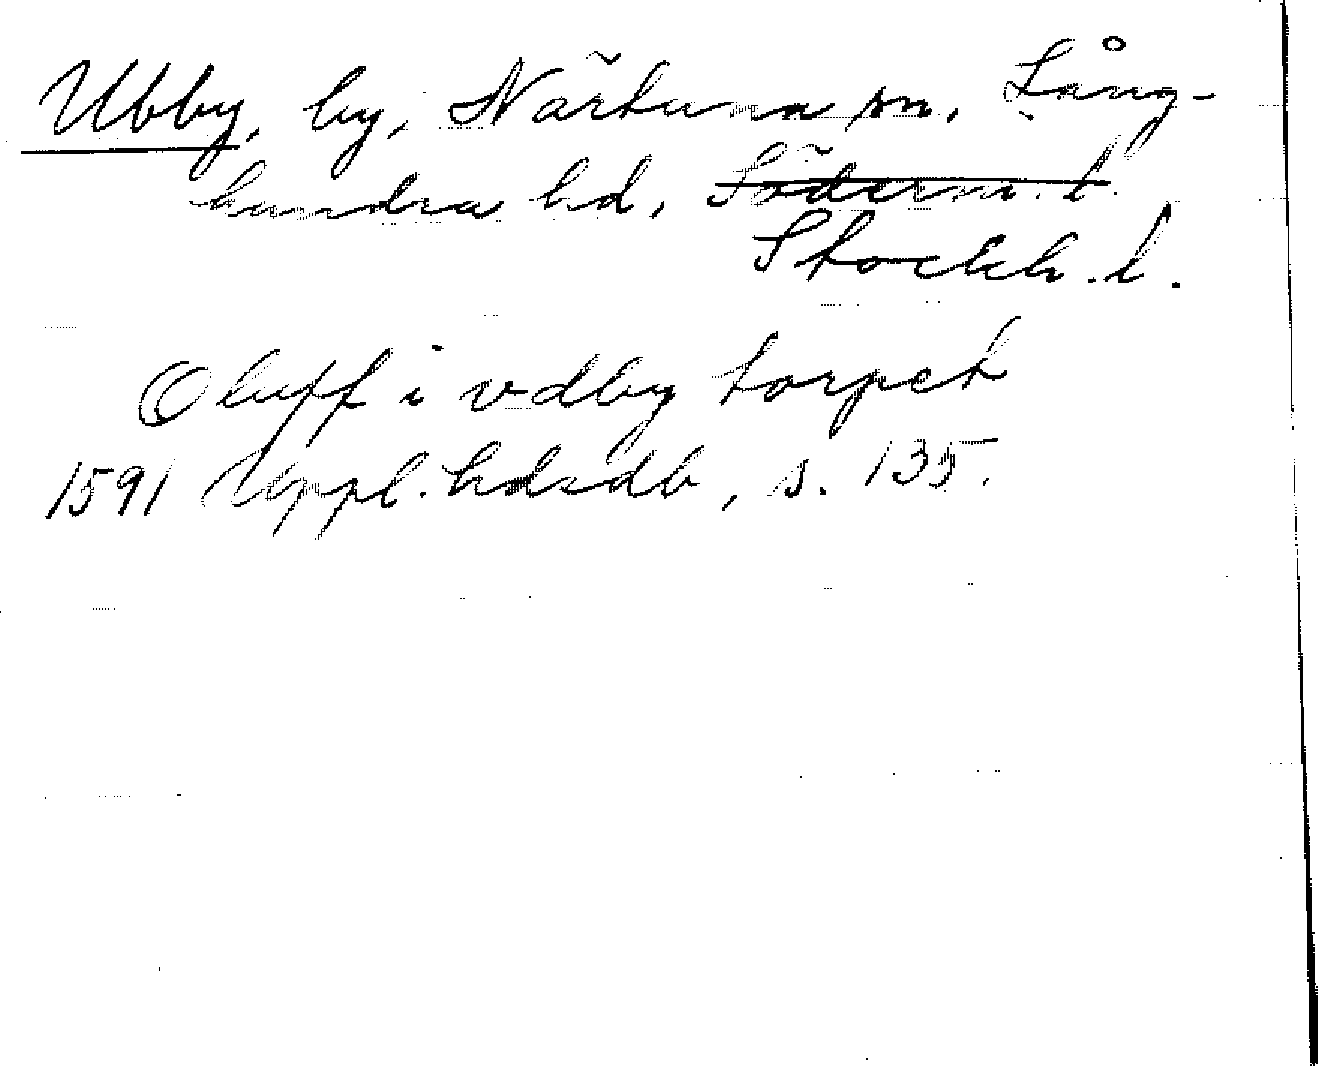 Ubby, by, Närtuna sn, Lång-
hundra hd, Söderm. l.
Stockh. l.
Oluff i vdby torpet
1591 Uppl. hdsdb, s. 135.